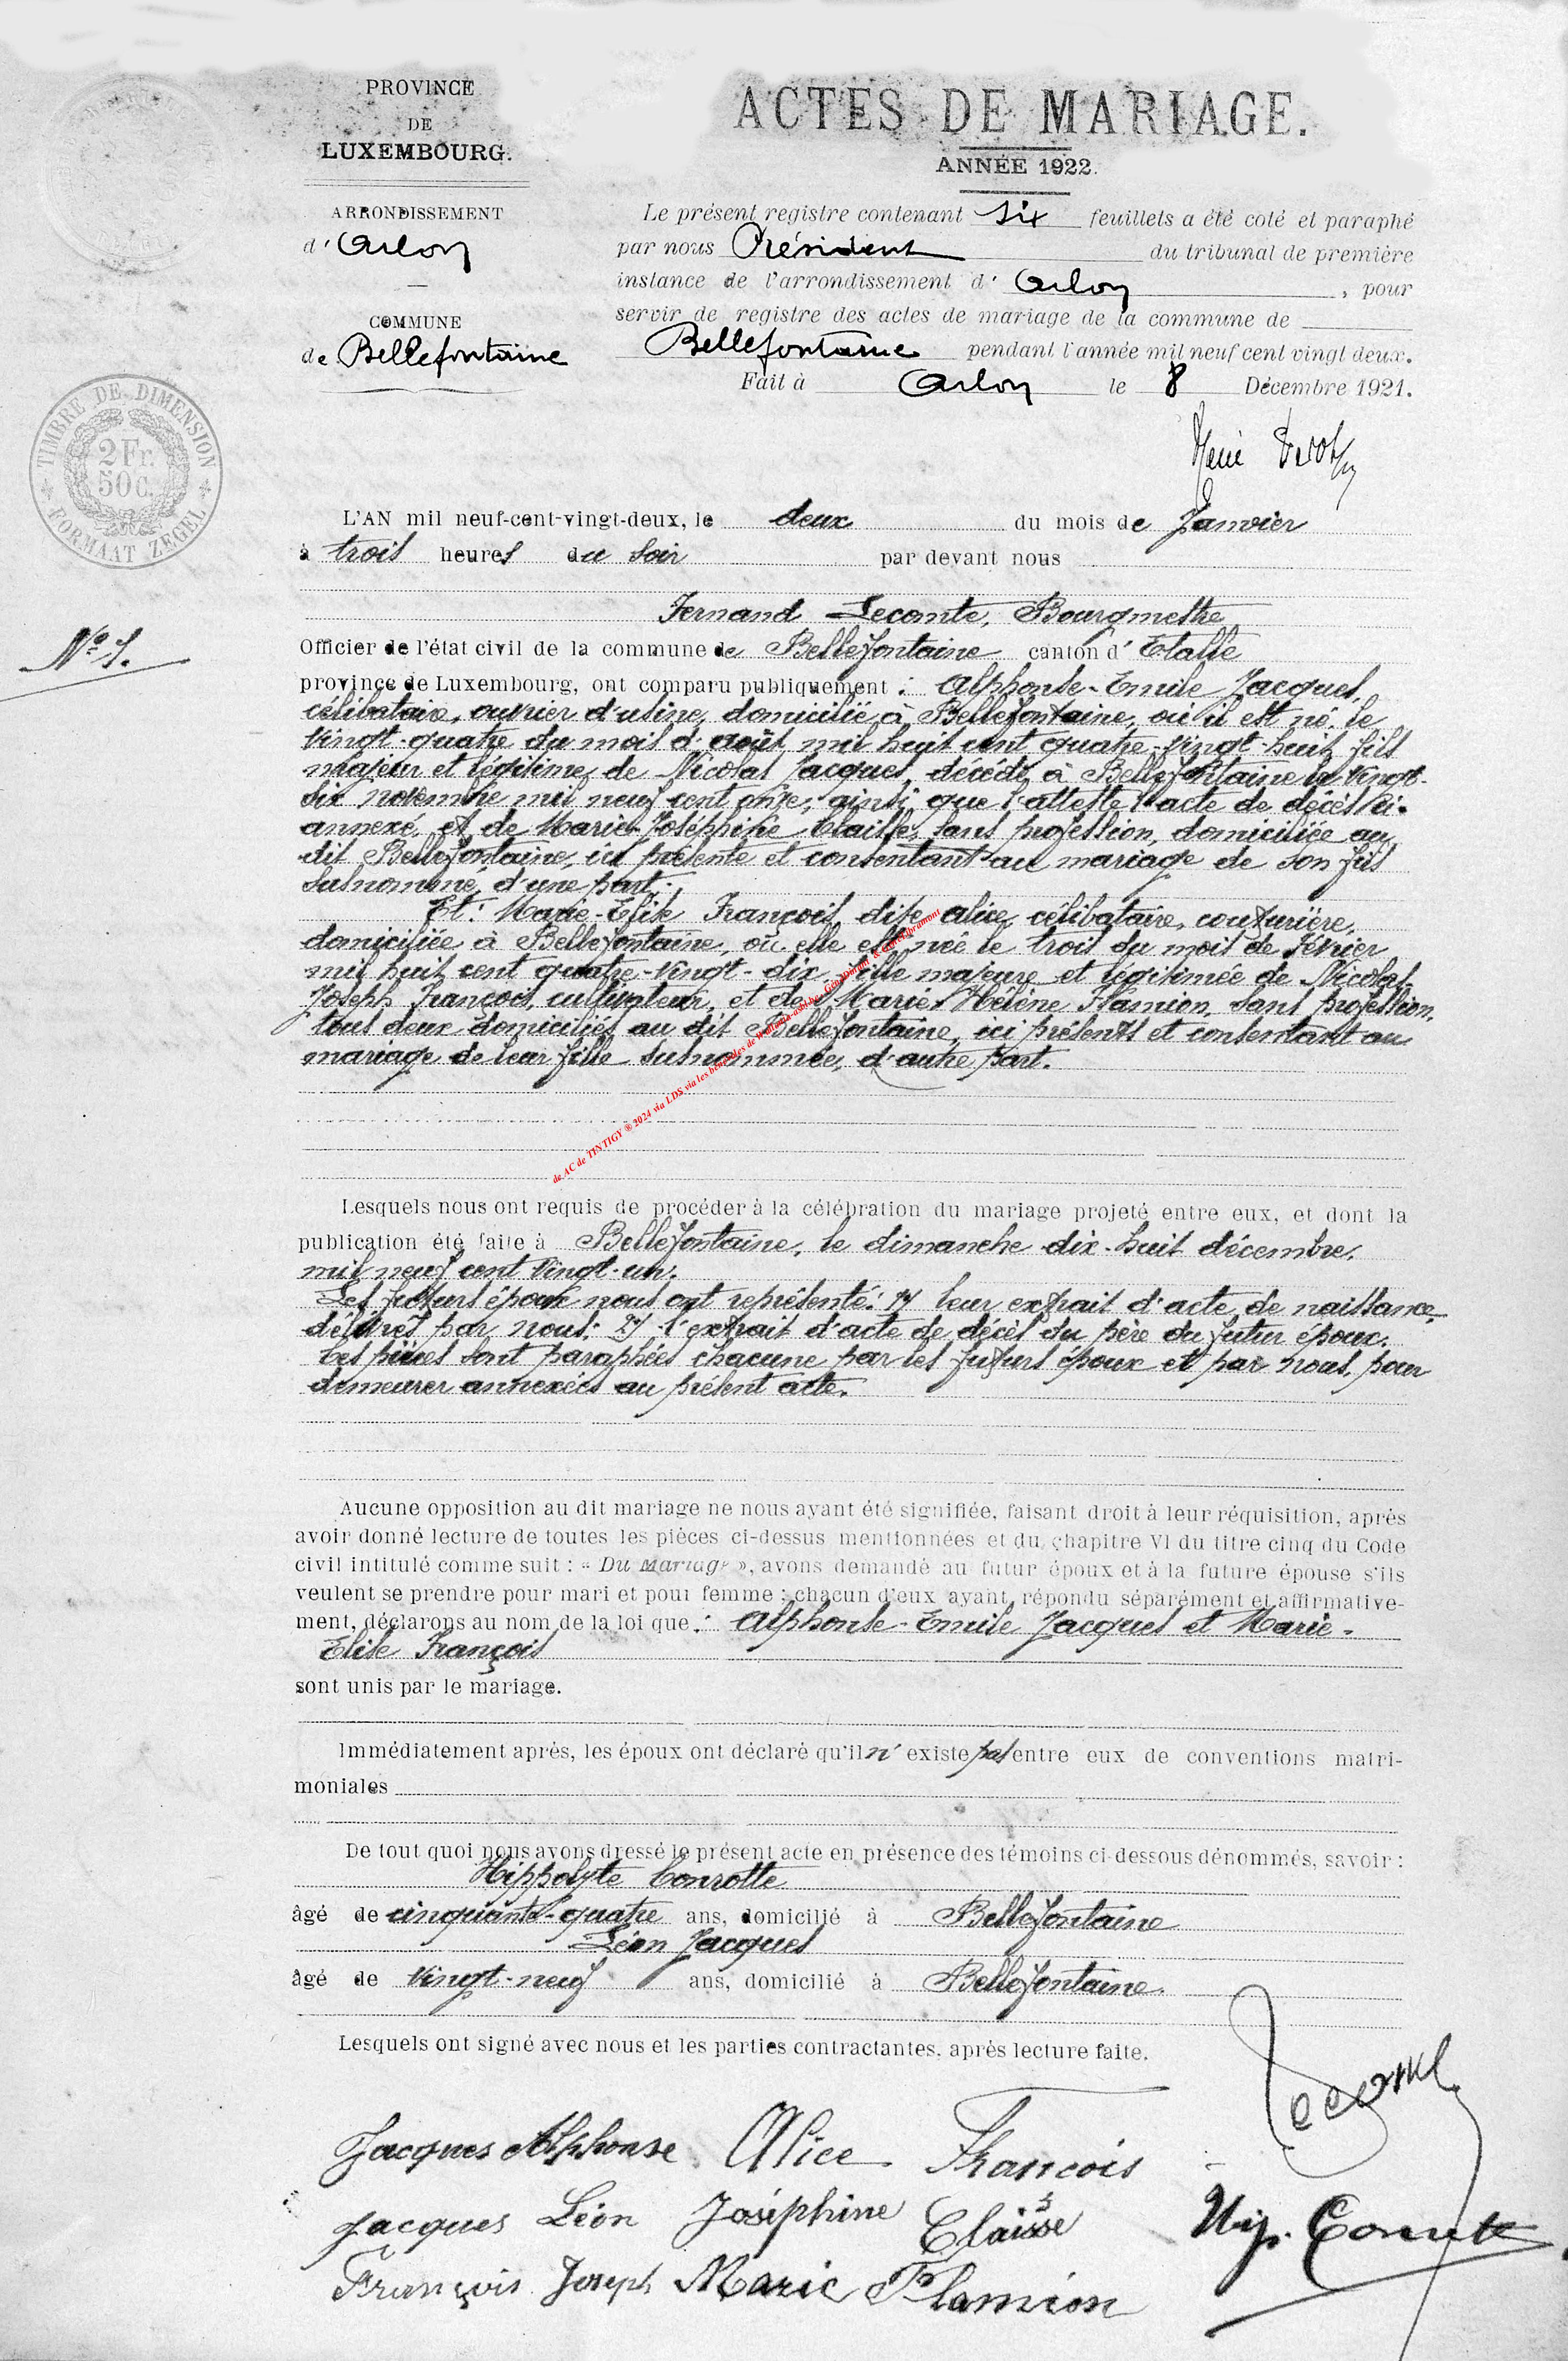 PROVINCE
DE
LUXEMBOURG.
ARRONDISSEMENT
d' Arlon
COMMUNE
de Bellefontaine
TIMBRE DE DIMENSION
2Fr.
50C.
FORMAAT ZEGEL
ACTES DE MARIAGE.
ANNÉE 1922.
Le présent registre contenant six feuillets a été coté et paraphé
par nous Président du tribunal de première
instance de l'arrondissement d' Arlon, pour
servir de registre des actes de mariage de la commune de
Bellefontaine pendant l'année mil neuf cent vingt deux.
Fait à Arlon le 8 Décembre 1921.
L'AN mil neuf-cent-vingt-deux, le deux du mois de Janvier
à trois heures du soir par devant nous
Fernand Lecomte, Bourgmestre
N° 1.
Officier de l'état civil de la commune de Bellefontaine canton d' Etalle
province de Luxembourg, ont comparu publiquement : Alphonse-Emile Jacques,
célibataire, ouvrier d'usine, domicilié à Bellefontaine, où il est né, le
vingt-quatre du mois d'août mil huit cent quatre-vingt-huit, fils
majeur et légitime de Nicolas Jacques, décédé à Bellefontaine le vingt-
six novembre mil neuf cent onze, ainsi que l'atteste l'acte de décès ci-
annexé, et de Marie-Joséphine Claisse, sans profession, domiciliée au
dit Bellefontaine, ici présente et consentant au mariage de son fils
susnommé, d'une part ;
Et : Marie-Elise François, dite Alice, célibataire, couturière,
domiciliée à Bellefontaine, où elle est née le trois du mois de février
mil huit cent quatre-vingt-dix, fille majeure et légitimée de Nicolas
Joseph François, cultivateur, et de Marie-Hélène Flamion, sans profession,
tous deux domiciliés au dit Bellefontaine, ici présents et consentant au
mariage de leur fille susnommée, d'autre part.
de AC de TINTIGY ® 2024 via LDS via les bénévoles de
Lesquels nous ont requis de procéder à la célébration du mariage projeté entre eux, et dont la
publication été faite à Bellefontaine, le dimanche dix-huit décembre
mil neuf cent vingt-un.
Les futurs époux nous ont représenté : 1°/ leur extrait d'acte de naissance,
délivrés par nous; 2°/ l'extrait d'acte de décès du père du futur époux.
Ces pièces sont paraphées chacune par les futurs époux et par nous, pour
demeurer annexées au présent acte.
Aucune opposition au dit mariage ne nous ayant été signifiée, faisant droit à leur réquisition, après
avoir donné lecture de toutes les pièces ci-dessus mentionnées et du chapitre VI du titre cinq du Code
civil intitulé comme suit : « Du Mariage », avons demandé au futur époux et à la future épouse s'ils
veulent se prendre pour mari et pour femme ; chacun d'eux ayant répondu séparément et affirmative-
ment, déclarons au nom de la loi que : Alphonse-Emile Jacques et Marie-
Elise François
sont unis par le mariage.
Immédiatement après, les époux ont déclaré qu'il n' existe pas entre eux de conventions matri-
moniales
De tout quoi nous avons dressé le présent acte en présence des témoins ci-dessous dénommés, savoir :
Hippolyte Conrotte
âgé de cinquante-quatre ans, domicilié à Bellefontaine
Léon Jacques
âgé de vingt-neuf ans, domicilié à Bellefontaine.
Lesquels ont signé avec nous et les parties contractantes, après lecture faite.
Jacques Alphonse Alice François
Jacques Léon Joséphine Claisse
François Joseph Marie Flamion